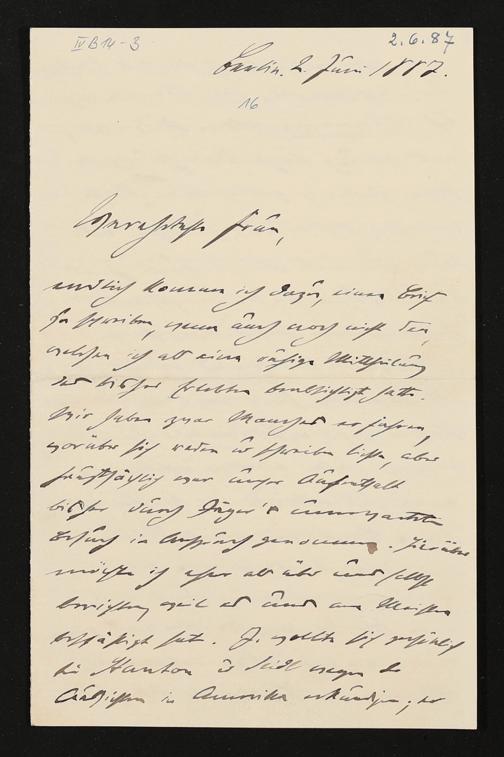 IV B 14-3
2.6.87
Berlin, 2. Juni 1887.
16
Verehrteste Frau,
endlich komme ich dazu, einen Brief
zu schreiben, wenn auch noch nicht den,
welchen ich als eine ruhige Mittheilung
des bisher Erlebten beabsichtigt hatte.
Wir haben zwar Manches erfahren,
worüber sich reden u schreiben ließe, aber
hauptsächlich war unser Aufenthalt
bisher durch Jäger's unerwarteten
Besuch in Anspruch genommen. Hierüber
möchte ich eher als über uns selbst
berichten, weil es uns am Meisten
beschäftigt hat. J. wollte sich persönlich
bei Stanton u Seidl wegen der
Aussichten in Amerika erkundigen; er